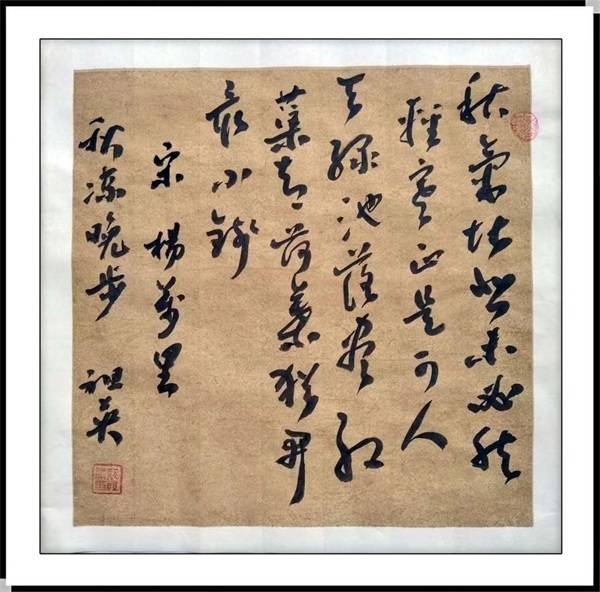 秋氣堪悲未必然
輕寒正是可人
天綠池落尽紅
蕖却荷葉猶開
最小錢
宋 楊萬里
秋凉晚步 祖英